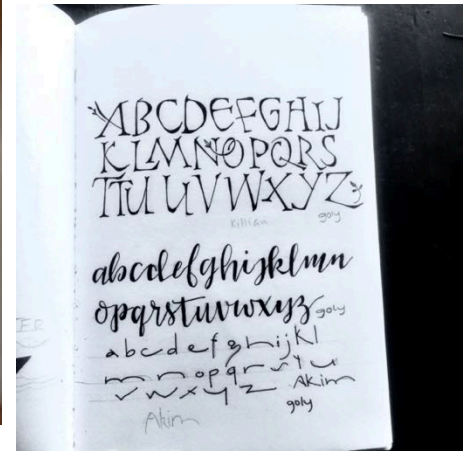 ABCDEFGHIJ
KLMNOPQRS
TTU UVWXYZ
Killian goly
abcdefghijklmn
opqrstuvwxyz goly
abcdefghijkl
mnopqrsyu
vwxyz Akim
goly
Akim
ER